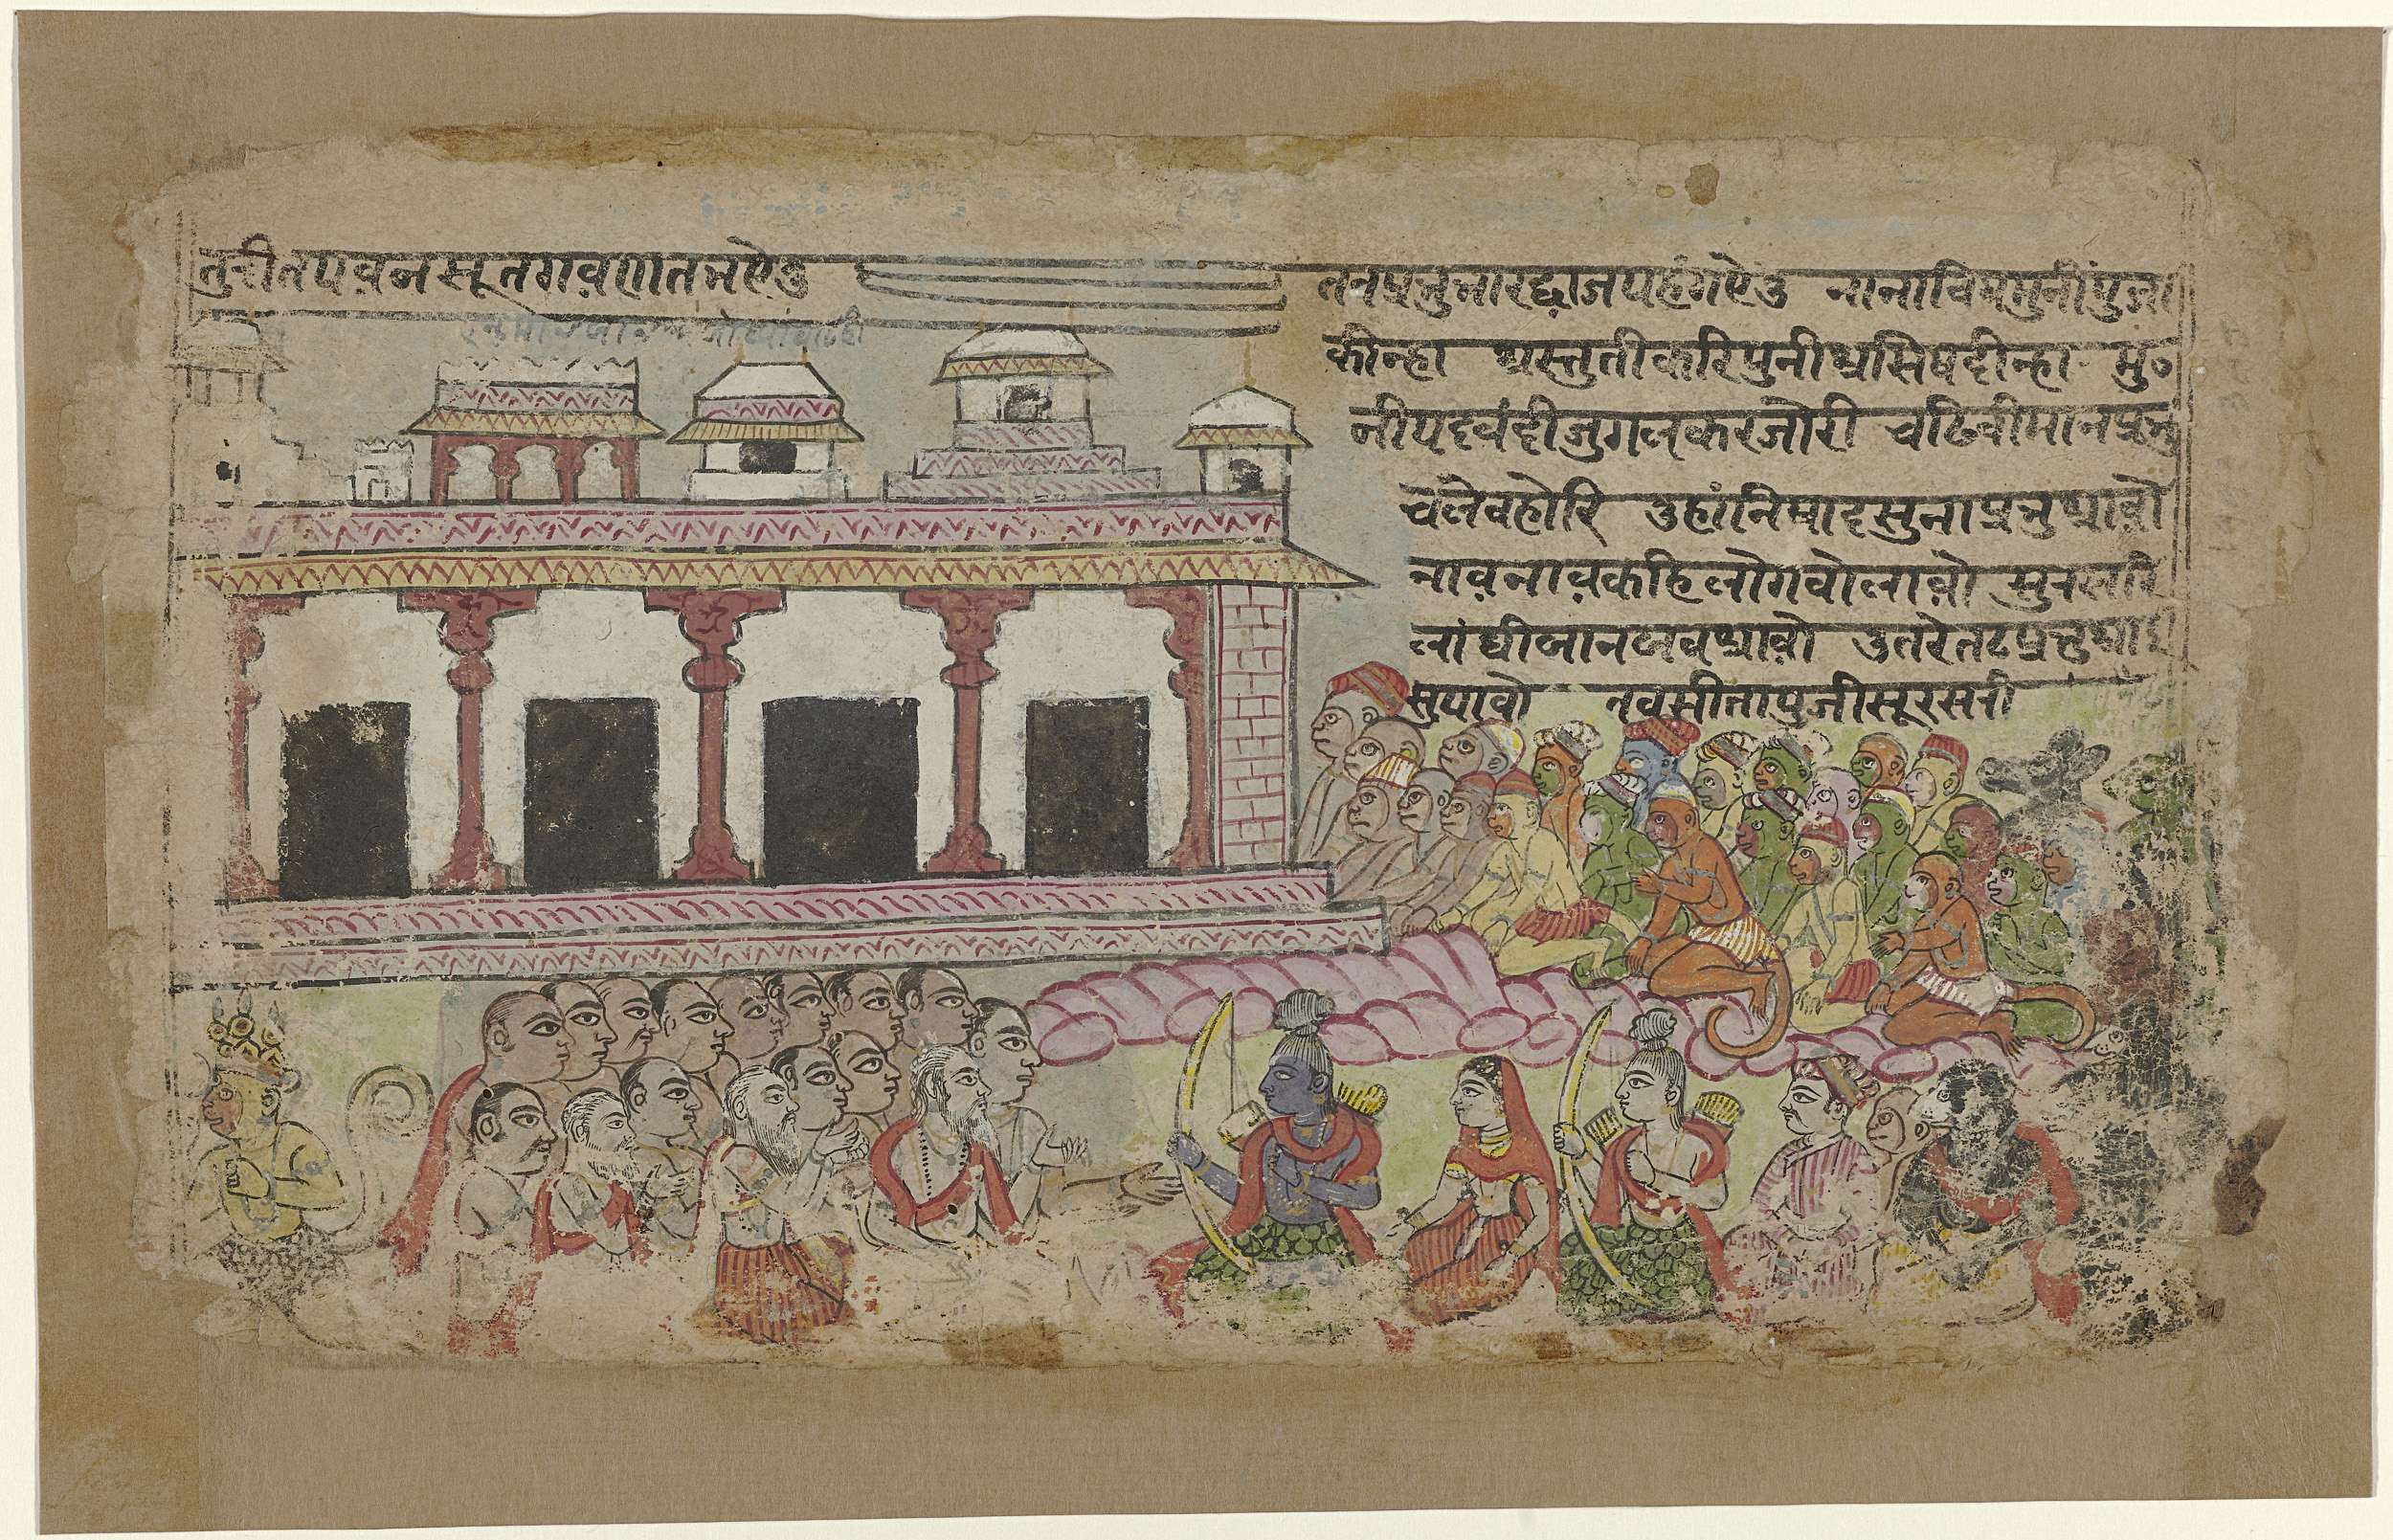 तुरीतपवनसूतगवणतभऐउ
तनप्रभुभारद्वाजपहंगऐउ नानाविधमुनींपुजा
कीन्हा अस्तुतीकरिपुनीअसिषदीन्हा मु०
नीपदवंदीजुगलकरजोरी चढिवीमानप्रभु
चलेवहोरि उहांनिषादसुनाप्रभुआवो
नावनावकहिलोगवोलावो सुरसरि
लांघीजानजवआवो उतरेतटप्रभु
सुपावो तवसीतापुजीसूरसरी